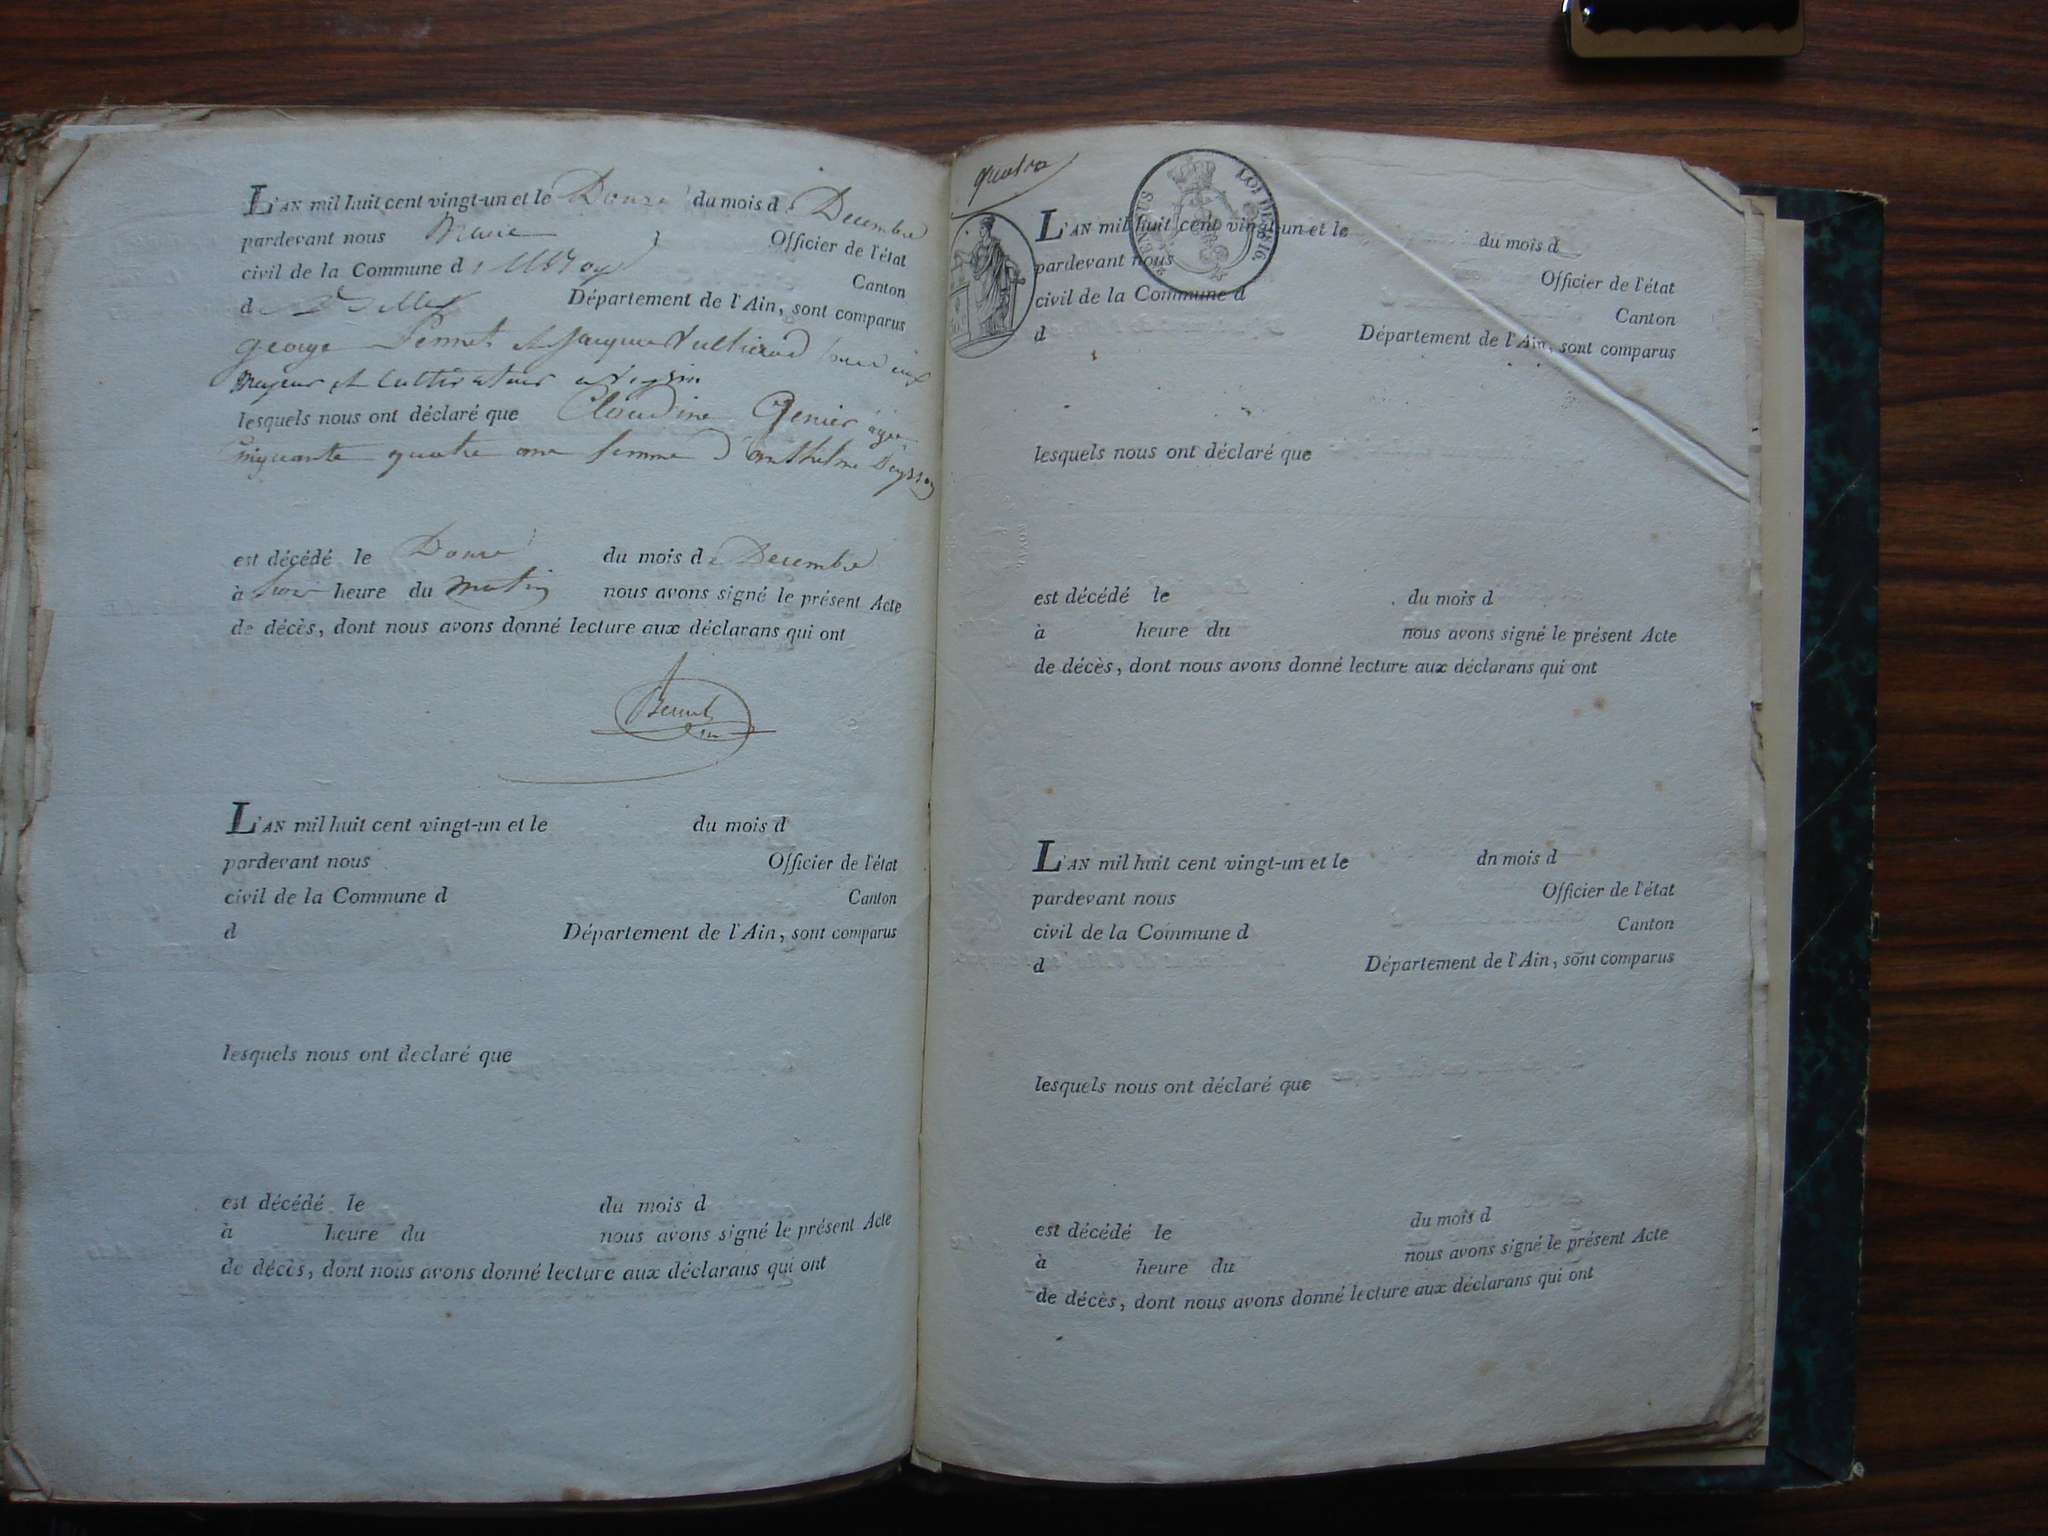 L'AN mil huit cent vingt-un et le Douze du mois de Decembre
pardevant nous Maire Officier de l'état
civil de la Commune d Canton
d Département de l'Ain, sont comparus
george Pennet et Jacques Vulliaud tous deux
Majeurs et Cultivateurs a
lesquels nous ont déclaré que Claudine Genier âgée
Cinquante quatre ans femme d'anthelme
est décédé le Douze du mois de Decembre
à heure du Matin nous avons signé le présent Acte
de décès, dont nous avons donné lecture aux déclarans qui ont
L'AN mil huit cent vingt-un et le du mois d
pardevant nous Officier de l'état
civil de la Commune d Canton
d Département de l'Ain, sont comparus
lesquels nous ont declaré que
est décédé le du mois d
à heure du nous avons signé le présent Acte
de décès, dont nous avons donné lecture aux déclarans qui ont
quatre
LOI DE 1816
L'AN mil huit cent vingt-un et le du mois d
pardevant nous Officier de l'état
civil de la Commune d Canton
d Département de l'Ain, sont comparus
lesquels nous ont déclaré que
est décédé le du mois d
à heure du nous avons signé le présent Acte
de décès, dont nous avons donné lecture aux déclarans qui ont
L'AN mil huit cent vingt-un et le dn mois d
pardevant nous Officier de l'état
civil de la Commune d Canton
d Département de l'Ain, sont comparus
lesquels nous ont déclaré que
est décédé le du mois d
à heure du nous avons signé le présent Acte
de décès, dont nous avons donné lecture aux déclarans qui ont